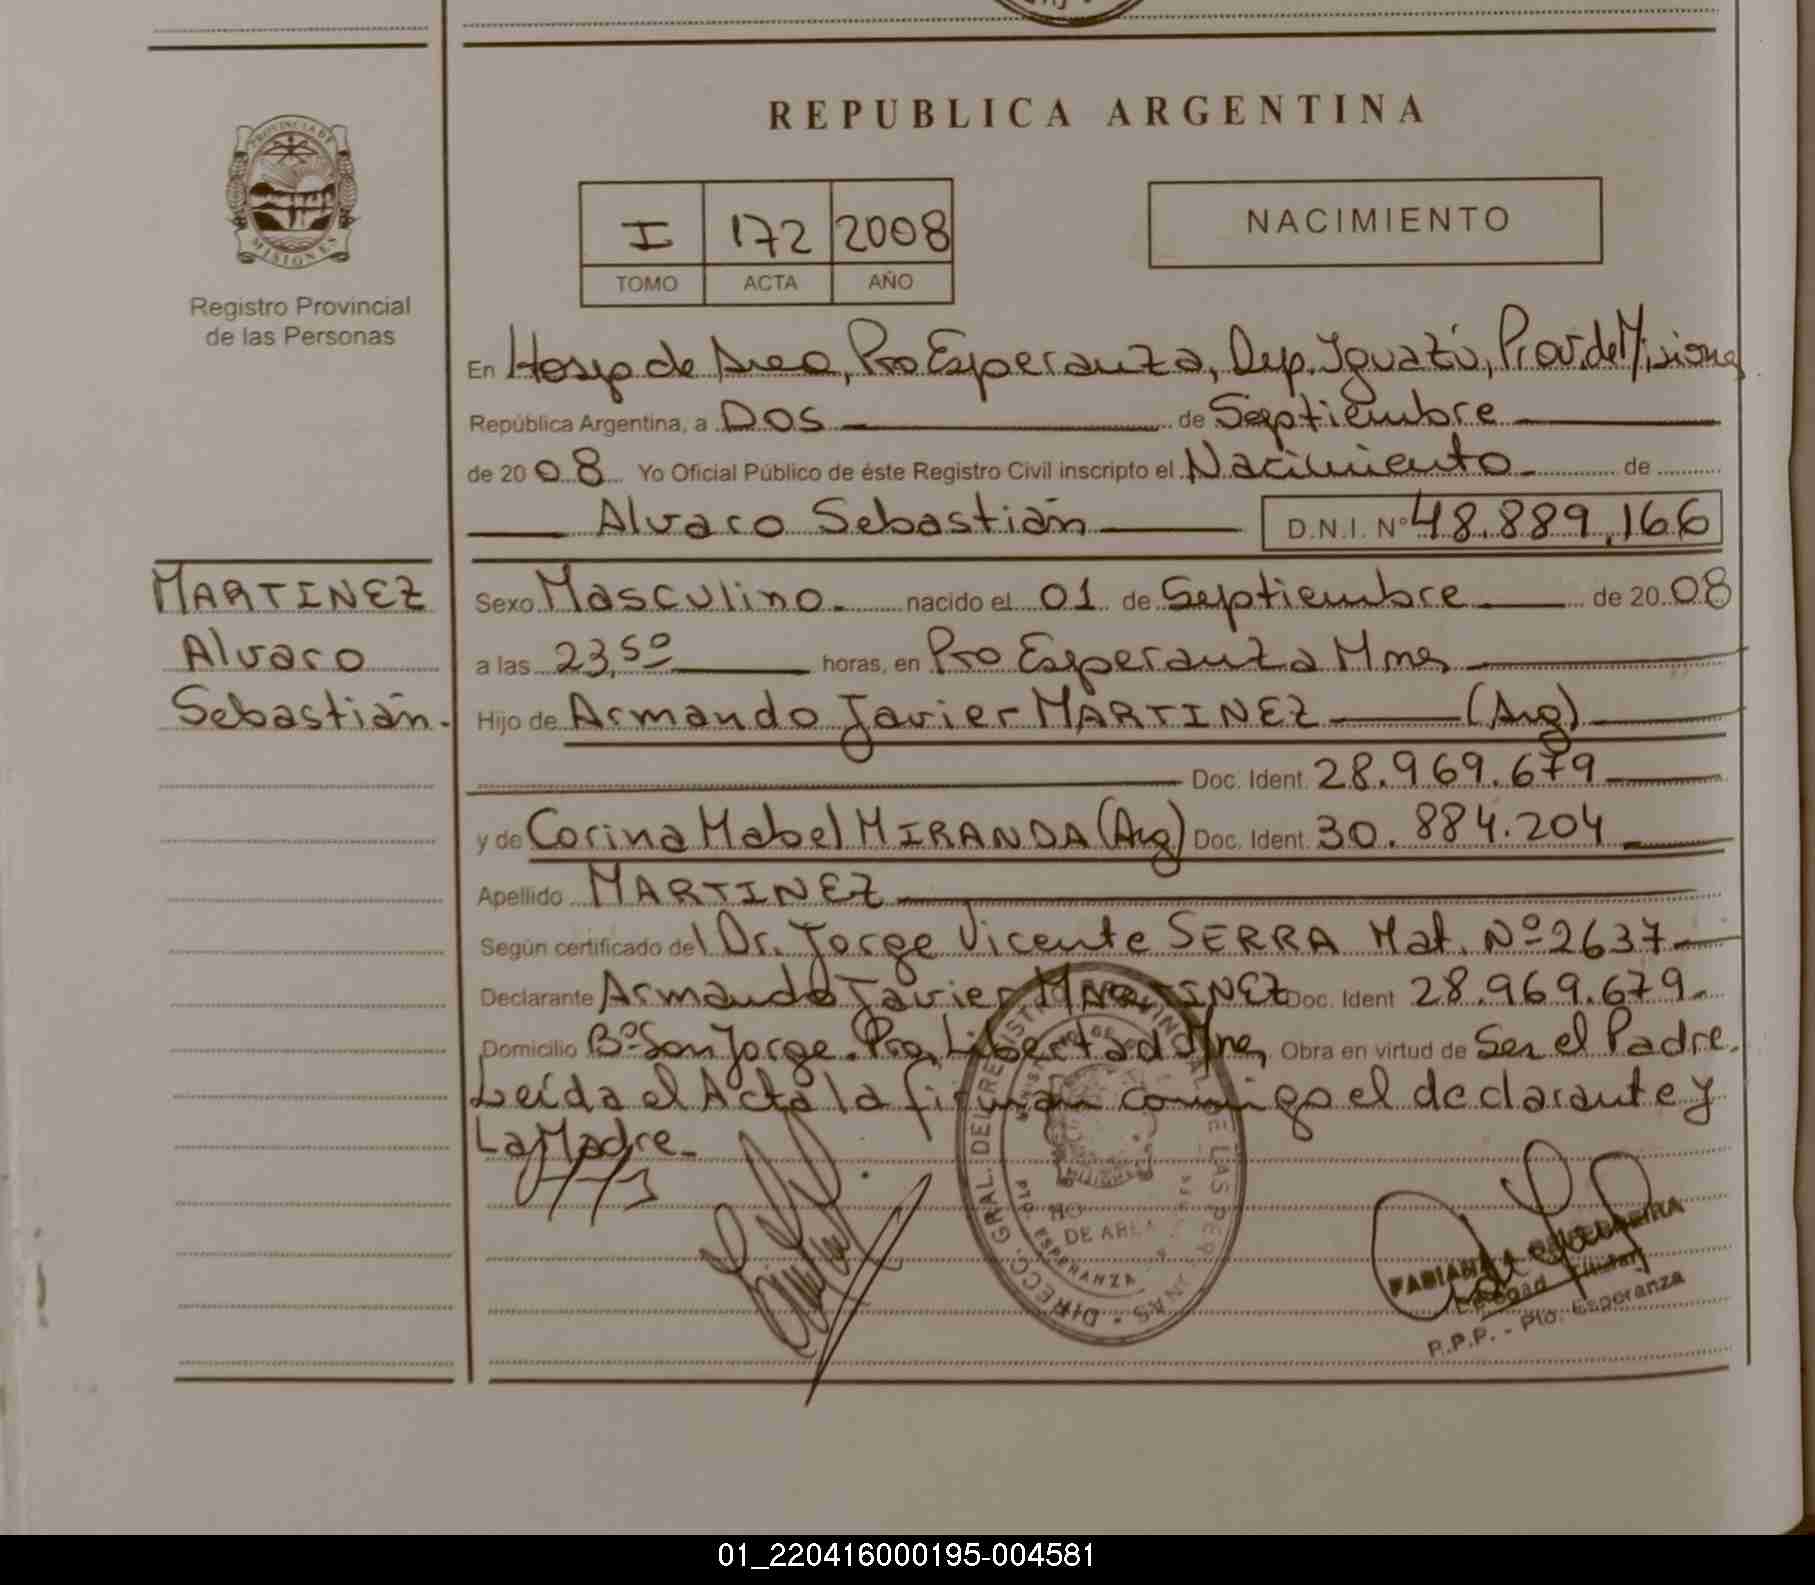 REPUBLICA ARGENTINA
PROVINCIA DE
MISIONES
Registro Provincial
de las Personas
I 172 2008
TOMO ACTA AÑO
NACIMIENTO
En Hosp de Area, Pto Esperanza, Dep. Iguazú, Prov. de Misiones
República Argentina, a Dos de Septiembre
de 2008 Yo Oficial Público de éste Registro Civil inscripto el Nacimiento de
Alvaro Sebastián D.N.I. Nº 48.889.166
MARTINEZ
Alvaro
Sebastián.
Sexo Masculino. nacido el 01 de Septiembre de 2008
a las 23,50 horas, en Pto Esperanza Mnes
Hijo de Armando Javier MARTINEZ (Arg)
Doc. Ident. 28.969.679
y de Corina Mabel MIRANDA (Arg) Doc. Ident. 30.884.204
Apellido MARTINEZ
Según certificado del Dr. Jorge Vicente SERRA Mat. Nº 2637
Declarante Armando Javier MARTINEZ Doc. Ident 28.969.679.
Domicilio Bº San Jorge. Pto. Libertad Mnes Obra en virtud de Ser el Padre.
Leída el Acta la firman conmigo el declarante y
La Madre.
DIRECC. GRAL. DEL REGISTRO PROVINCIAL DE LAS PERSONAS
PTO. ESPERANZA
DE AREA
FABIANA
P.P.P. - Pto. Esperanza
01_220416000195-004581